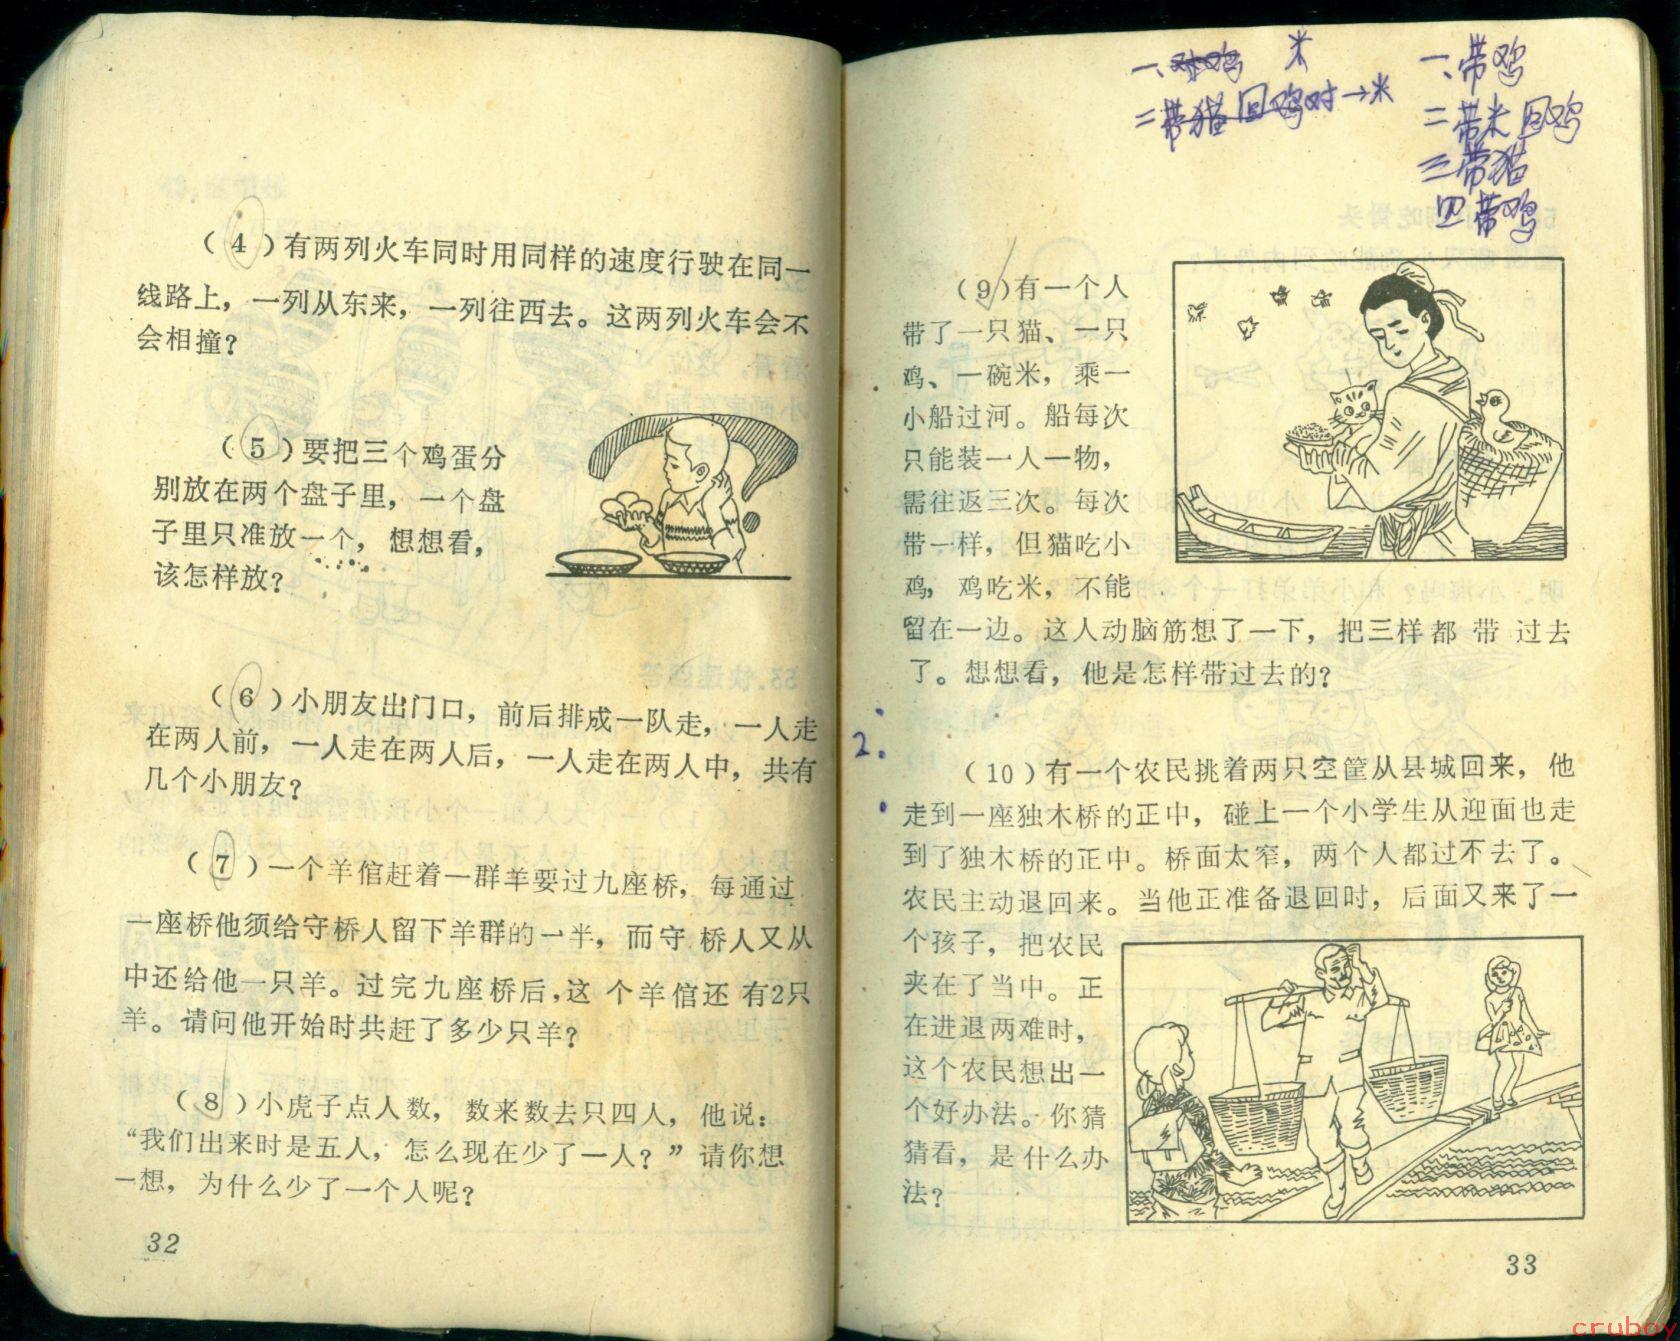 （4）有两列火车同时用同样的速度行驶在同一
线路上，一列从东来，一列往西去。这两列火车会不
会相撞？
（5）要把三个鸡蛋分
别放在两个盘子里，一个盘
子里只准放一个，想想看，
该怎样放？
（6）小朋友出门口，前后排成一队走，一人走
在两人前，一人走在两人后，一人走在两人中，共有
几个小朋友？
（7）一个羊倌赶着一群羊要过九座桥，每通过
一座桥他须给守桥人留下羊群的一半，而守桥人又从
中还给他一只羊。过完九座桥后，这个羊倌还有2只
羊。请问他开始时共赶了多少只羊？
（8）小虎子点人数，数来数去只四人，他说：
“我们出来时是五人，怎么现在少了一人？”请你想
一想，为什么少了一个人呢？
32
一、 鸡 米
二带猫回鸡时→米
一、带鸡
二带米回鸡
三带猫
四带鸡
（9）有一个人
带了一只猫、一只
鸡、一碗米，乘一
小船过河。船每次
只能装一人一物，
需往返三次。每次
带一样，但猫吃小
鸡，鸡吃米，不能
留在一边。这人动脑筋想了一下，把三样都带过去
了。想想看，他是怎样带过去的？
2.
（10）有一个农民挑着两只空筐从县城回来，他
走到一座独木桥的正中，碰上一个小学生从迎面也走
到了独木桥的正中。桥面太窄，两个人都过不去了。
农民主动退回来。当他正准备退回时，后面又来了一
个孩子，把农民
夹在了当中。正
在进退两难时，
这个农民想出一
个好办法。你猜
猜看，是什么办
法？
33
cruboy